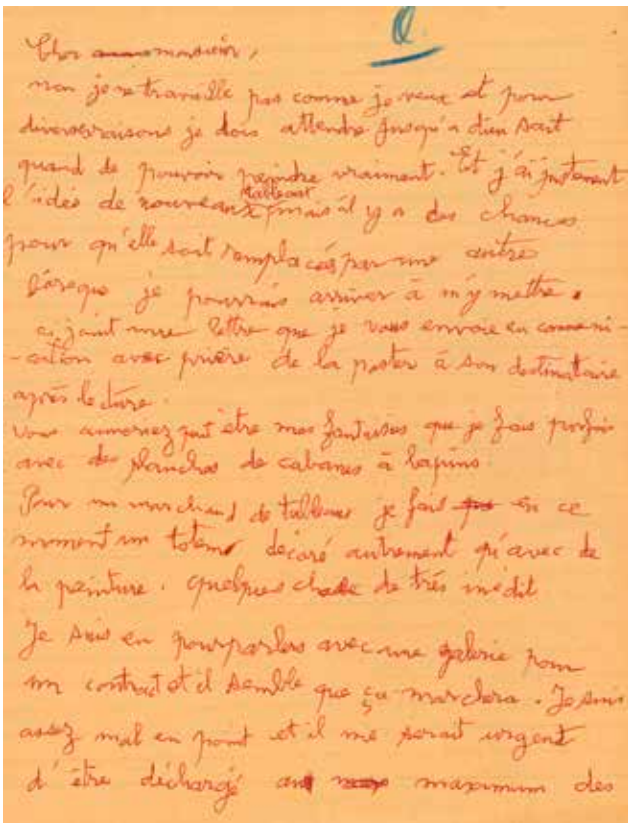 Cher monsieur,
non je ne travaille pas comme je veux et pour
diverses raisons je dois attendre jusqu'a dieu sait
quand de pouvoir peindre vraiment. Et j'ai justement
l'idée de nouveaux tableaux mais il y a des chances
pour qu'elle soit remplacée par une autre
lorsque je pourrais arriver à m'y mettre.
ci joint une lettre que je vous envoie en communi-
-cation avec prière de la poster à son destinataire
après lecture.
vous aimeriez peut être mes fantaisies que je fais parfois
avec des planches de cabanes à lapins.
Pour un marchand de tableaux je fais en ce
moment un totem décoré autrement qu'avec de
la peinture. quelque chose de très inédit
Je suis en pourparlers avec une galerie pour
un contrat et il semble que ça marchera. Je suis
assez mal en point et il me serait urgent
d'être déchargé au maximum des